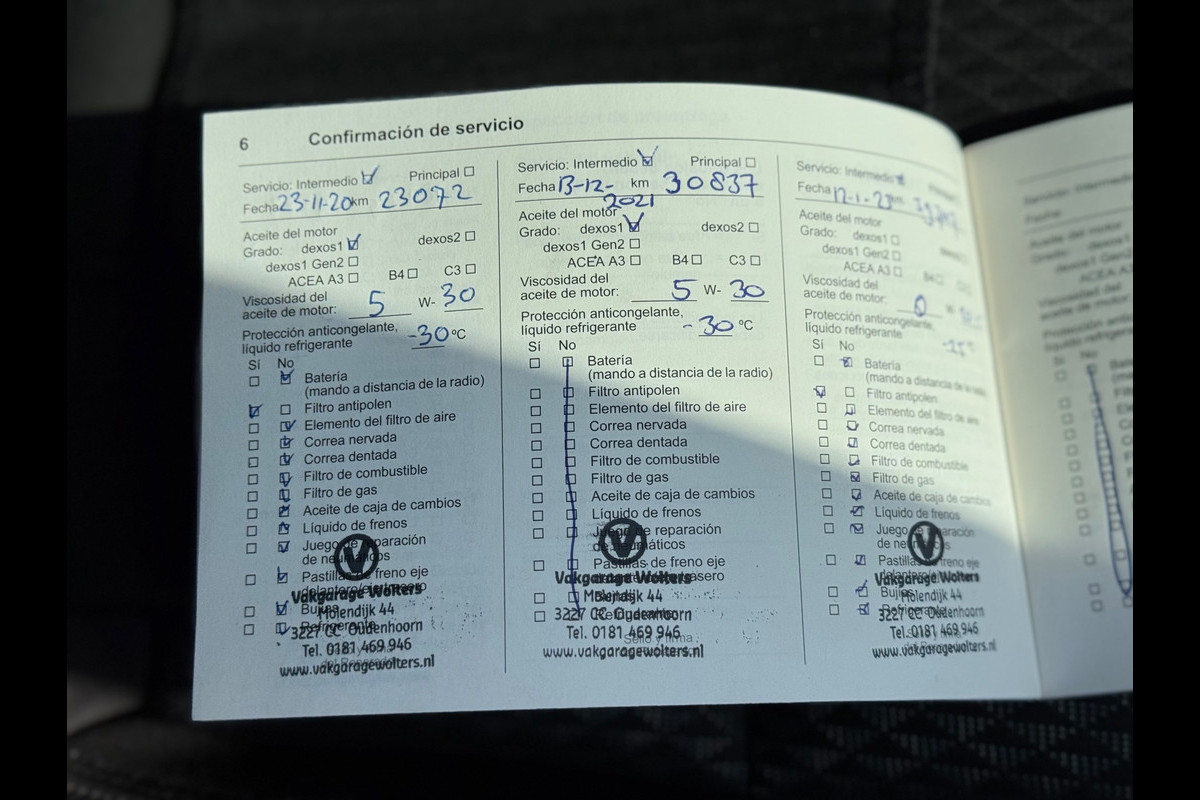 6 Confirmación de servicio
Servicio: Intermedio Principal
Fecha 23-11-20 km 23072
Aceite del motor
Grado: dexos1 dexos2
dexos1 Gen2
ACEA A3 B4 C3
Viscosidad del
aceite de motor: 5 W- 30
Protección anticongelante,
líquido refrigerante -30 ºC
Sí No
Batería
(mando a distancia de la radio)
Filtro antipolen
Elemento del filtro de aire
Correa nervada
Correa dentada
Filtro de combustible
Filtro de gas
Aceite de caja de cambios
Líquido de frenos
Juego de reparación
de neumáticos
Pastillas de freno eje
delantero/eje trasero
Vakgarage Wolters
Bujías
Molendijk 44
Refrigerante
3227 CC Oudenhoorn
Tel. 0181 469 946
www.vakgaragewolters.nl
Servicio: Intermedio Principal
Fecha 13-12- km 30837
2021
Aceite del motor
Grado: dexos1 dexos2
dexos1 Gen2
ACEA A3 B4 C3
Viscosidad del
aceite de motor: 5 W- 30
Protección anticongelante,
líquido refrigerante -30 ºC
Sí No
Batería
(mando a distancia de la radio)
Filtro antipolen
Elemento del filtro de aire
Correa nervada
Correa dentada
Filtro de combustible
Filtro de gas
Aceite de caja de cambios
Líquido de frenos
Juego de reparación
de neumáticos
Pastillas de freno eje
trasero
Vakgarage Wolters
Molendijk 44
3227 CC Oudenhoorn
Tel. 0181 469 946
Sello y firma
www.vakgaragewolters.nl
Servicio: Intermedio
Fecha 12-1-23 km
Aceite del motor
Grado: dexos1
dexos1 Gen2
ACEA A3 B4
Viscosidad del
aceite de motor: 0 W-
Protección anticongelante,
líquido refrigerante
Sí No
Batería
(mando a distancia de la radio)
Filtro antipolen
Elemento del filtro de aire
Correa nervada
Correa dentada
Filtro de combustible
Filtro de gas
Aceite de caja de cambios
Líquido de frenos
Juego de reparación
de neumáticos
Pastillas de freno eje
Vakgarage Wolters
Bujías
Molendijk 44
Refrigerante
3227 CC Oudenhoorn
Tel. 0181 469 946
www.vakgaragewolters.nl